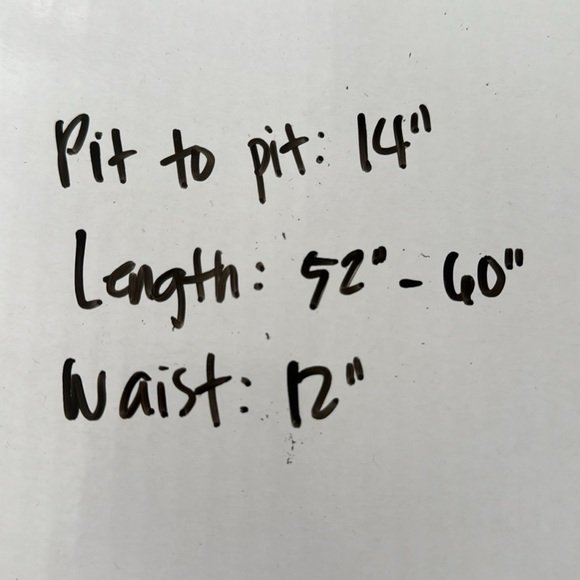 Pit to pit: 14"
Length: 52" - 60"
Waist: 12"